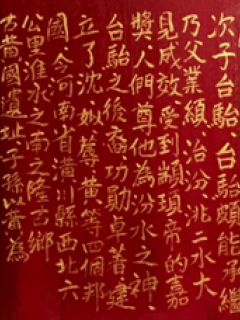 次子台駘、台駘頗能承繼
乃父業績、治汾、洮二水大
見成效、受到顓頊帝的嘉
獎、人們尊他為汾水之神、
台駘之後裔、功勛卓著、建
立了沈、姒、蓐、黃等四個邦
國、今河南省潢川縣西北六
公里淮水之南之陸古鄉
古黃國遺址、子孫以黃為